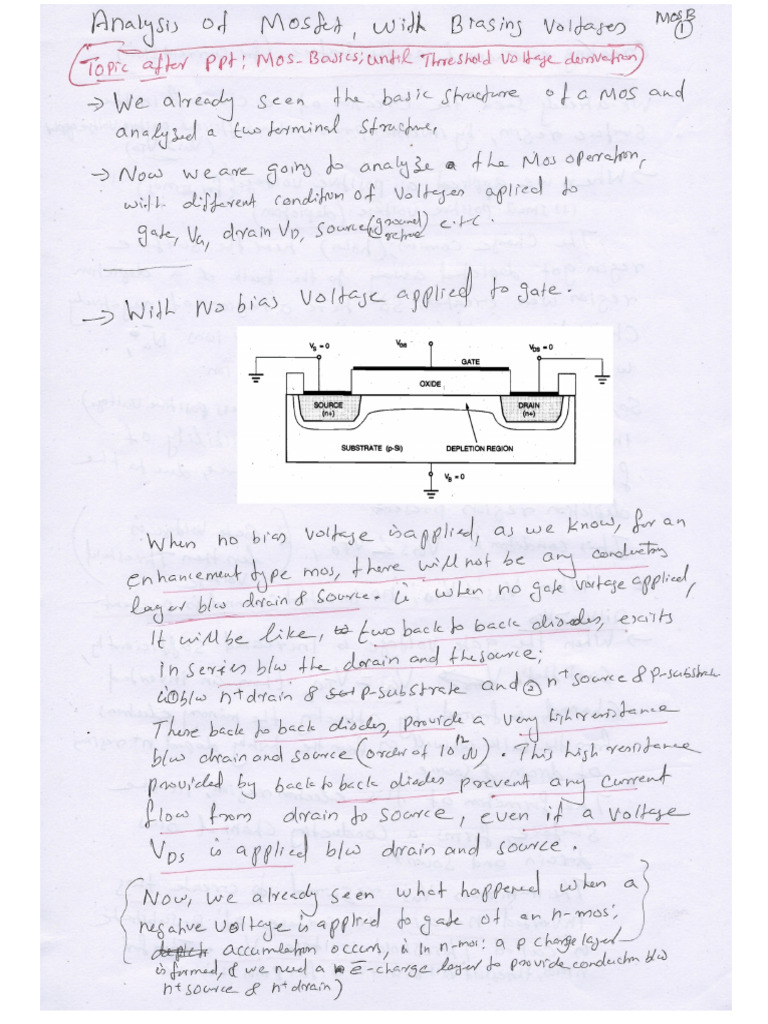 Analysis of Mosfet, with Biasing Voltages
MosB
1
Topic after ppt; Mos-Basics; until Threshold Voltage derivation
→ We already seen the basic structure of a MOS and
analyzed a two terminal structure.
→ Now we are going to analyze the Mos operation,
with different condition of Voltages aplied to
gate, VG, drain VD, source (ground) etc.
→ With No bias Voltage applied to gate.
VS = 0
VGS
VDS = 0
GATE
OXIDE
SOURCE
(n+)
DRAIN
(n+)
SUBSTRATE (p-Si)
DEPLETION REGION
VB = 0
When no bias voltage is applied, as we know, for an
enhancement type mos, there will not be any conducting
layer b/w drain & source. ie when no gate voltage applied,
It will be like, two back to back diodes, exists
in series b/w the drain and the source;
ie ① b/w n+ drain & p-substrate and ② n+ source & p-substrate
These back to back diodes, provide a very high resistance
b/w drain and source (order of 10^12 Ω). This high resistance
provided by back to back diodes prevent any current
flow from drain to source, even if a voltage
VDS is applied b/w drain and source.
(Now, we already seen what happened when a
negative voltage is applied to gate of an n-mos;
accumulation occurs, ie in n-mos: a p charge layer
is formed, & we need a e-charge layer to provide conduction b/w
n+ source & n+ drain)